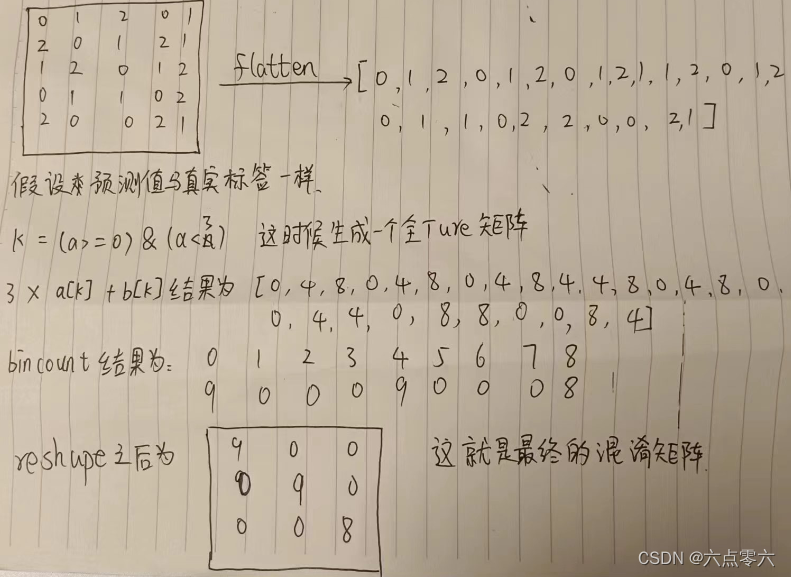 0 1 2 0 1
2 0 1 2 1
1 2 0 1 2
0 1 1 0 2
2 0 0 2 1
flatten
[0,1,2,0,1,2,0,1,2,1,1,2,0,1,2
0,1,1,0,2,2,0,0,2,1]
假设预测值与真实标签一样.
k=(a>=0)&(a<3) 这时候生成一个全Ture矩阵
3×a[k]+b[k]结果为 [0,4,8,0,4,8,0,4,8,4,4,8,0,4,8,0,
0,4,4,0,8,8,0,0,8,4]
bincount结果为: 0 1 2 3 4 5 6 7 8
9 0 0 0 9 0 0 0 8
reshape之后为
9 0 0
0 9 0
0 0 8
这就是最终的混淆矩阵.
CSDN @六点零六